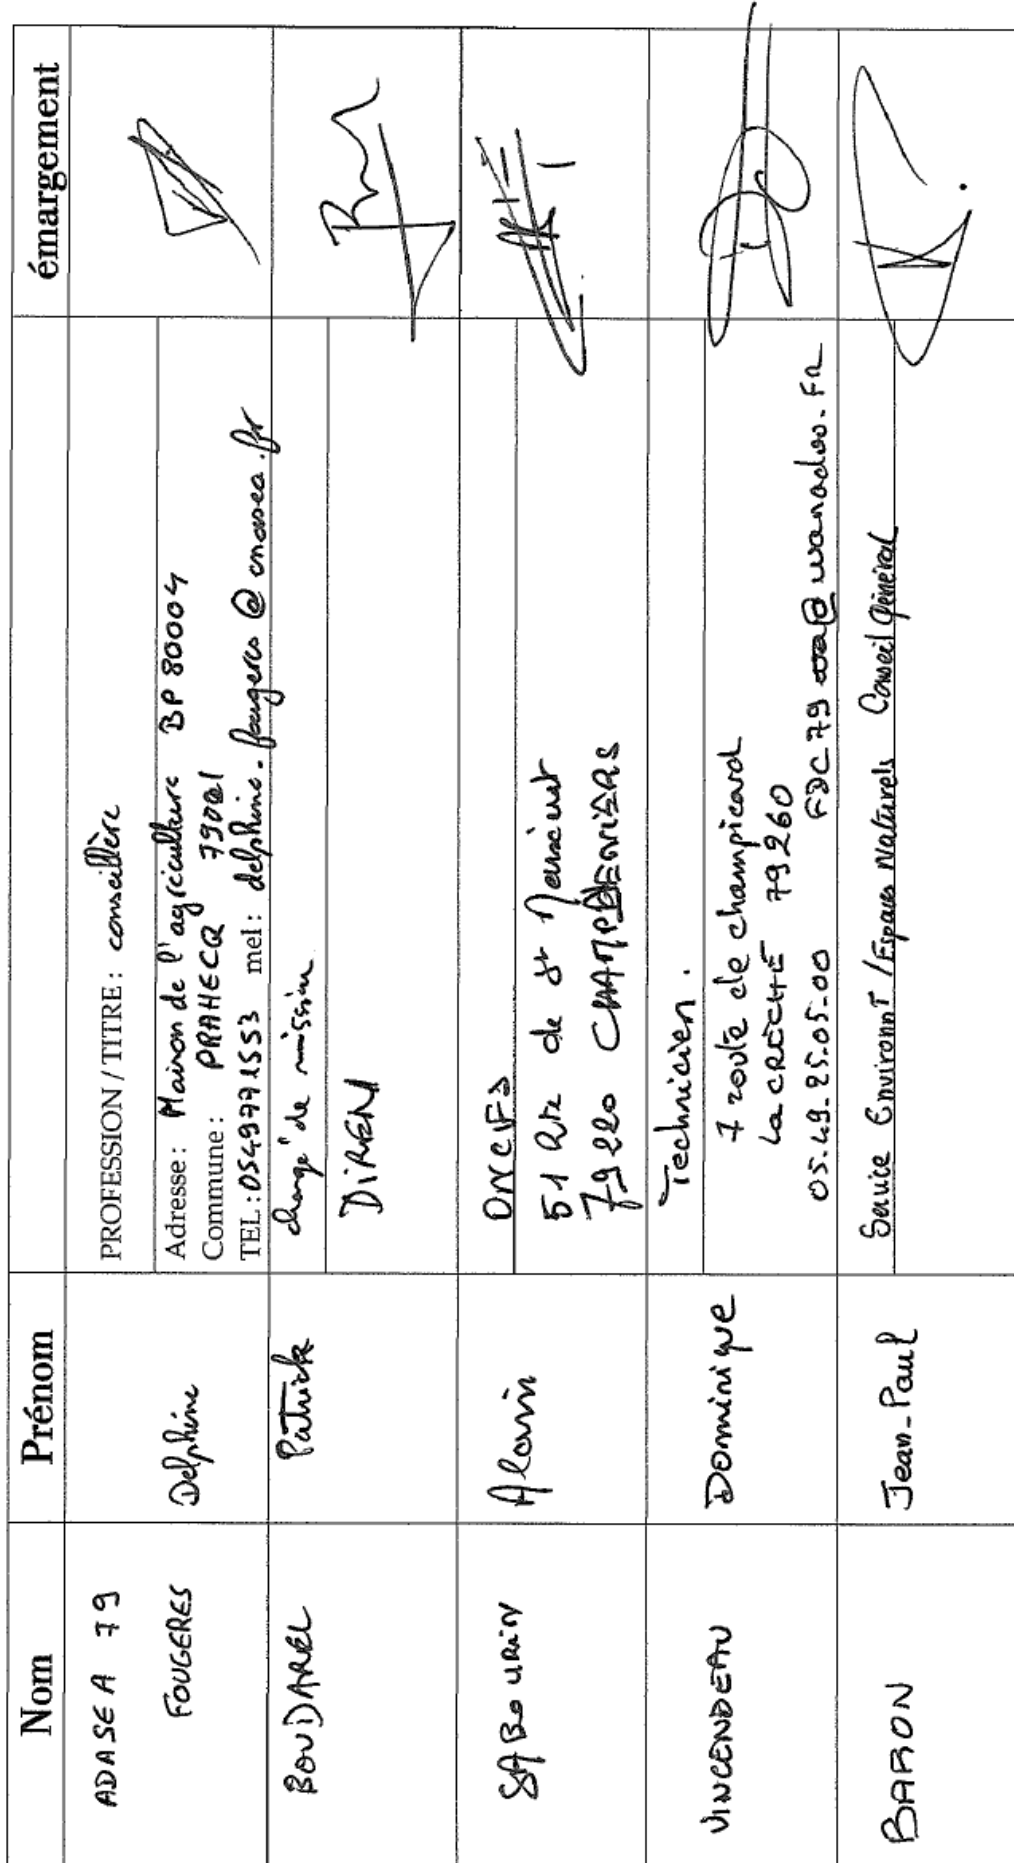 Nom Prénom émargement
ADASEA 79
FOUGERES
Delphine
PROFESSION / TITRE : conseillère
Adresse : Maison de l'agriculture BP 80004
Commune : PRAHECQ 79001
TEL : 0549771553 mel : delphine.fougeres @ cnasea.fr
BOUDAREL
Patrick
chargé de mission
DIREN
SABOURIN
Alain
ONCFS
51 Rte de St
79220 CHAMPDENIERS
VINCENDEAU
Dominique
Technicien.
7 route de champicard
La CRECHE 79260
05.49.25.05.00 FDC79 @ wanadoo.FR
BARON
Jean-Paul
Service EnvironnT / Espaces Naturels Conseil Général